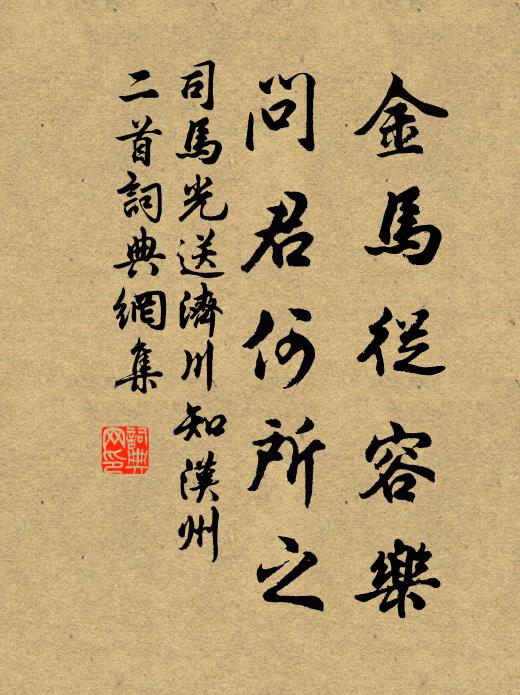 金馬從容樂
問君何所之
司馬光送濟川知漢州
二首詞典網集
詞典
网印